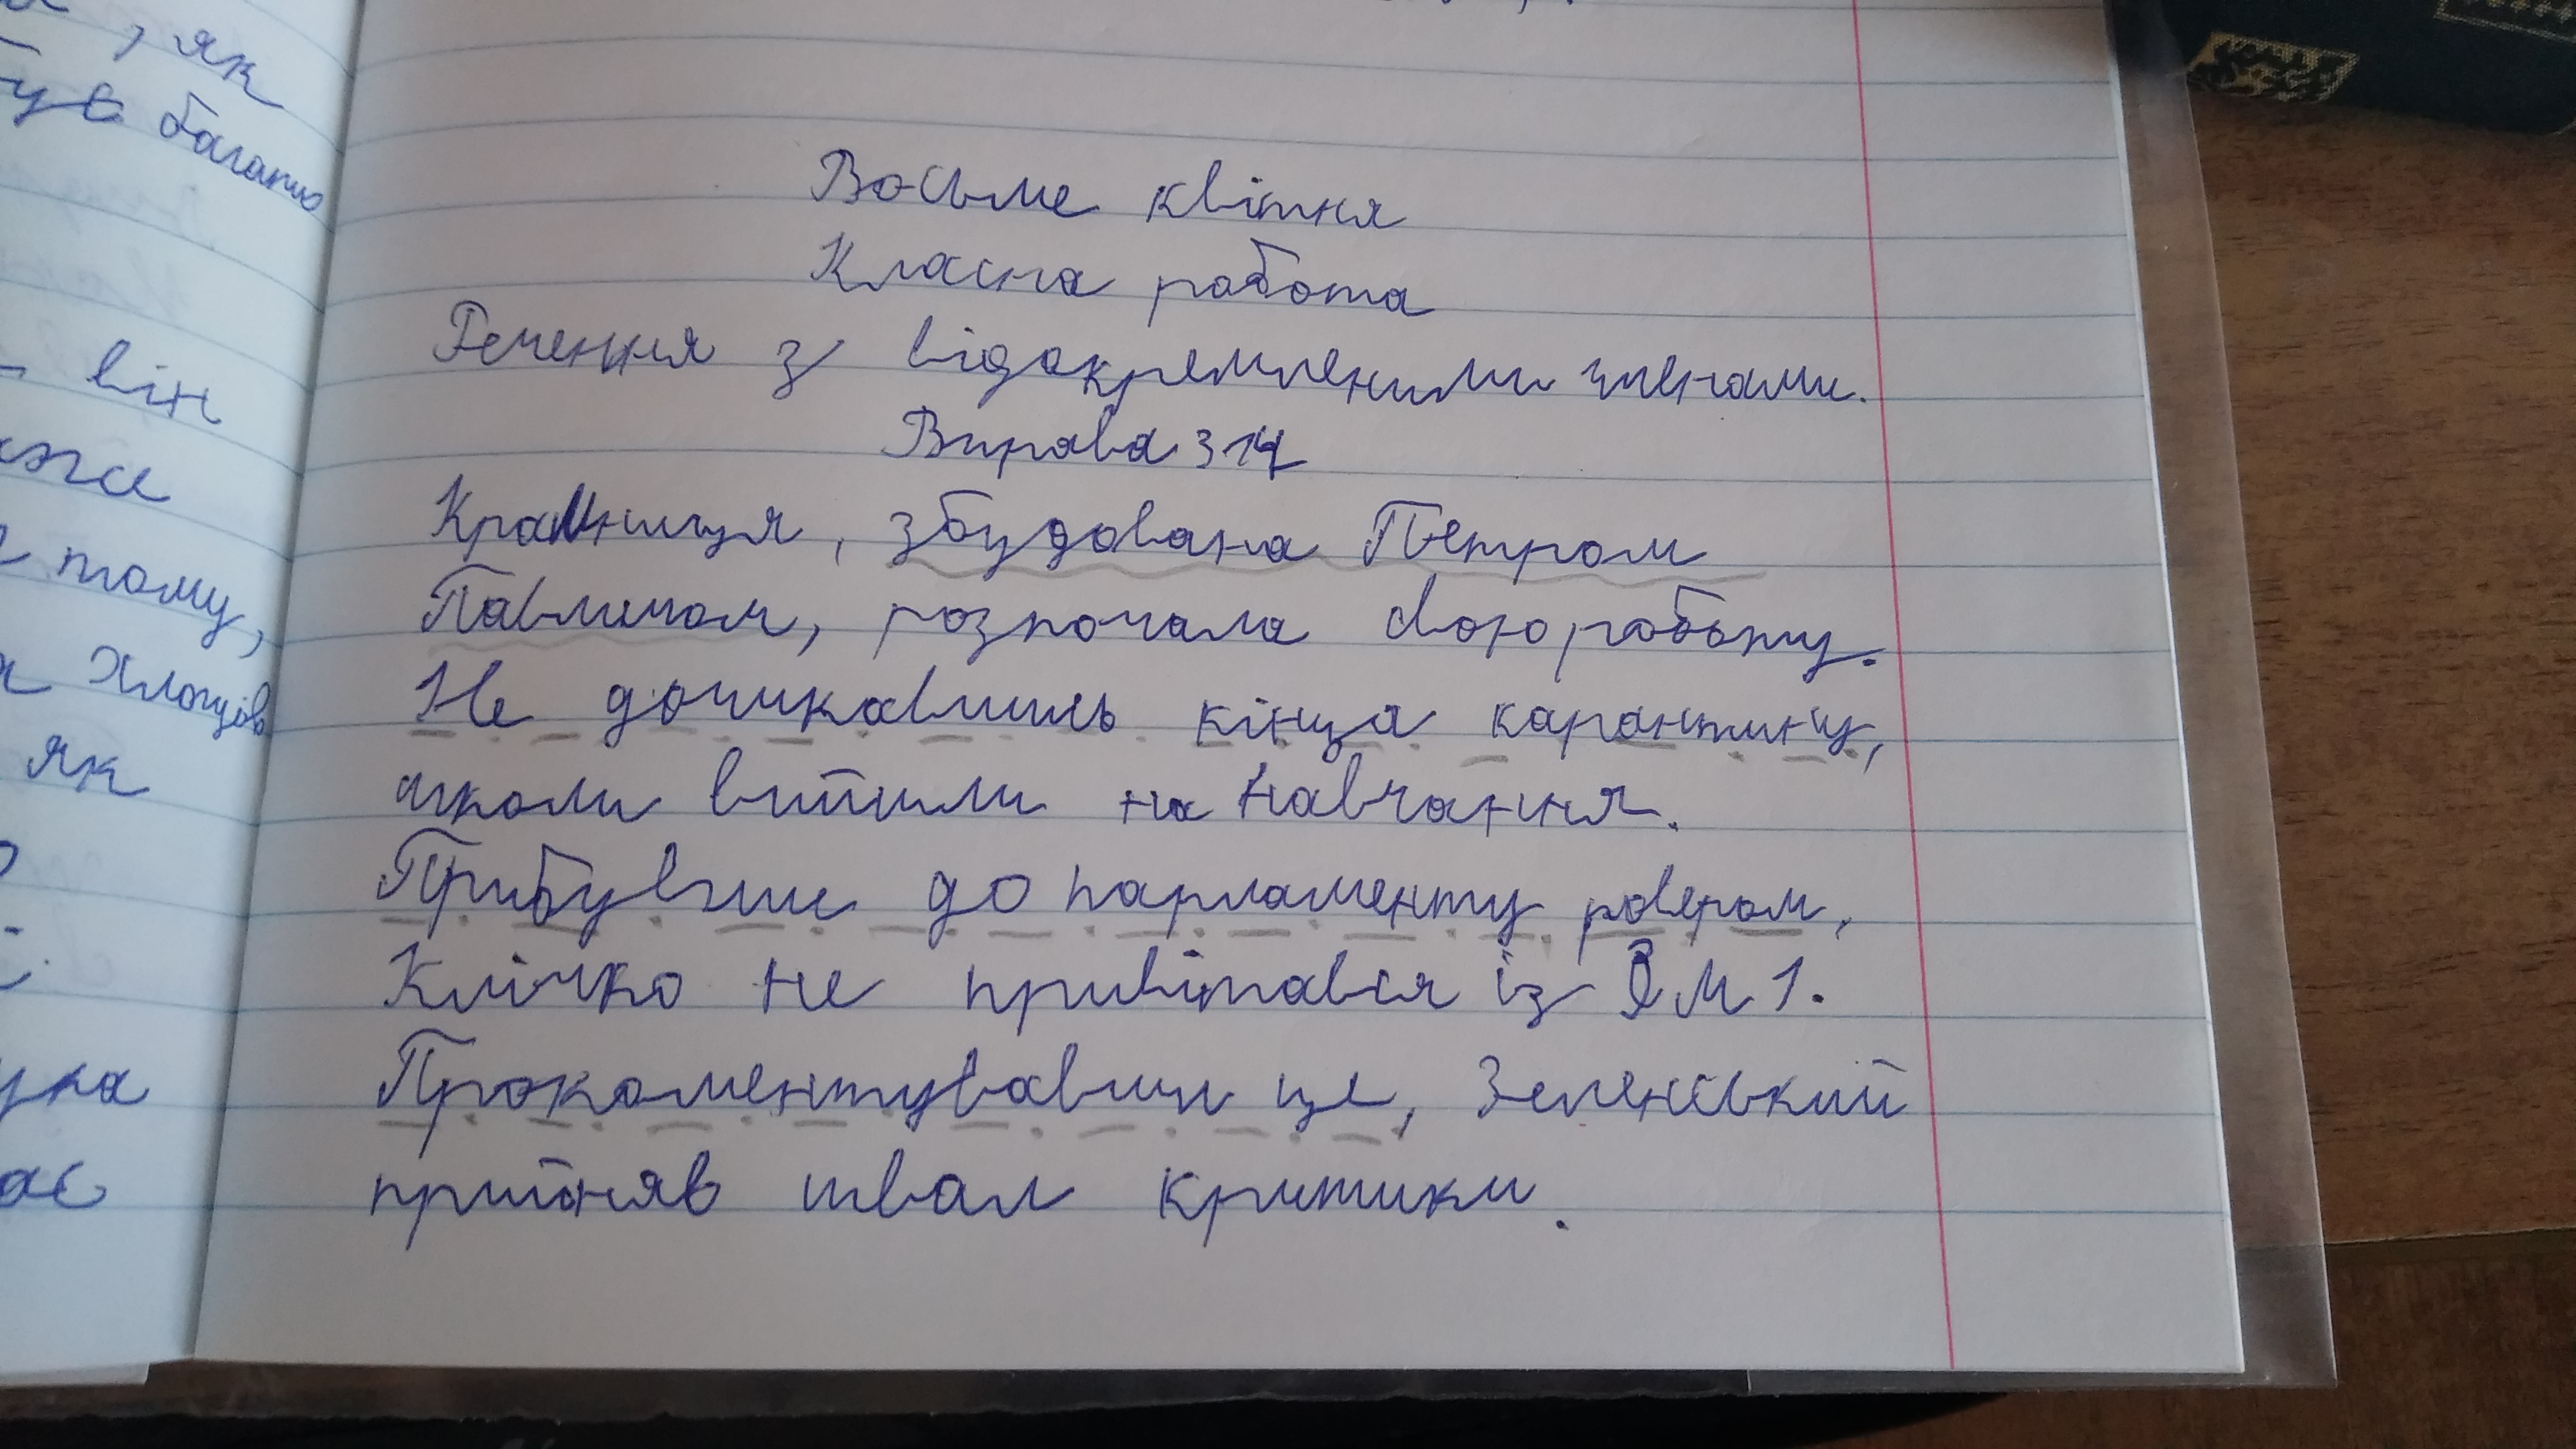 , як
був багато
він
тому,
Хлопців
як
Восьме квітня
Класна робота
Речення з відокремленими членами.
Вправа 314
Крамниця, збудована Петром
Павличом, розпочала свою роботу.
Не дочикавшись кінця карантину,
школи вийшли на навчання.
Прибувши до парламенту ровером,
Клічко не привітався із ЗМІ.
Прокоментувавши це, Зеленський
прийняв швал критики.